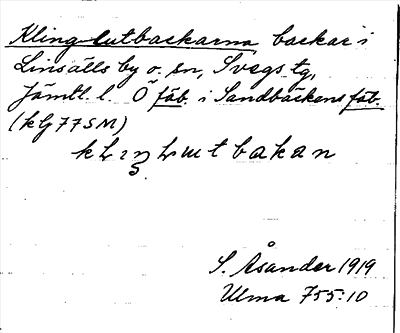 Klinglutbackarna backar i
Linsälls by o. sn, Svegs tg,
Jämtl. l. Ö fäb. i Sandbäckens fäb.
(klj 77 SM)
bakan
S. Åsander 1919
Ulma 755:10